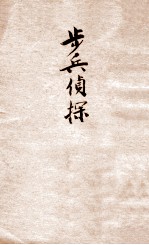 步兵偵探